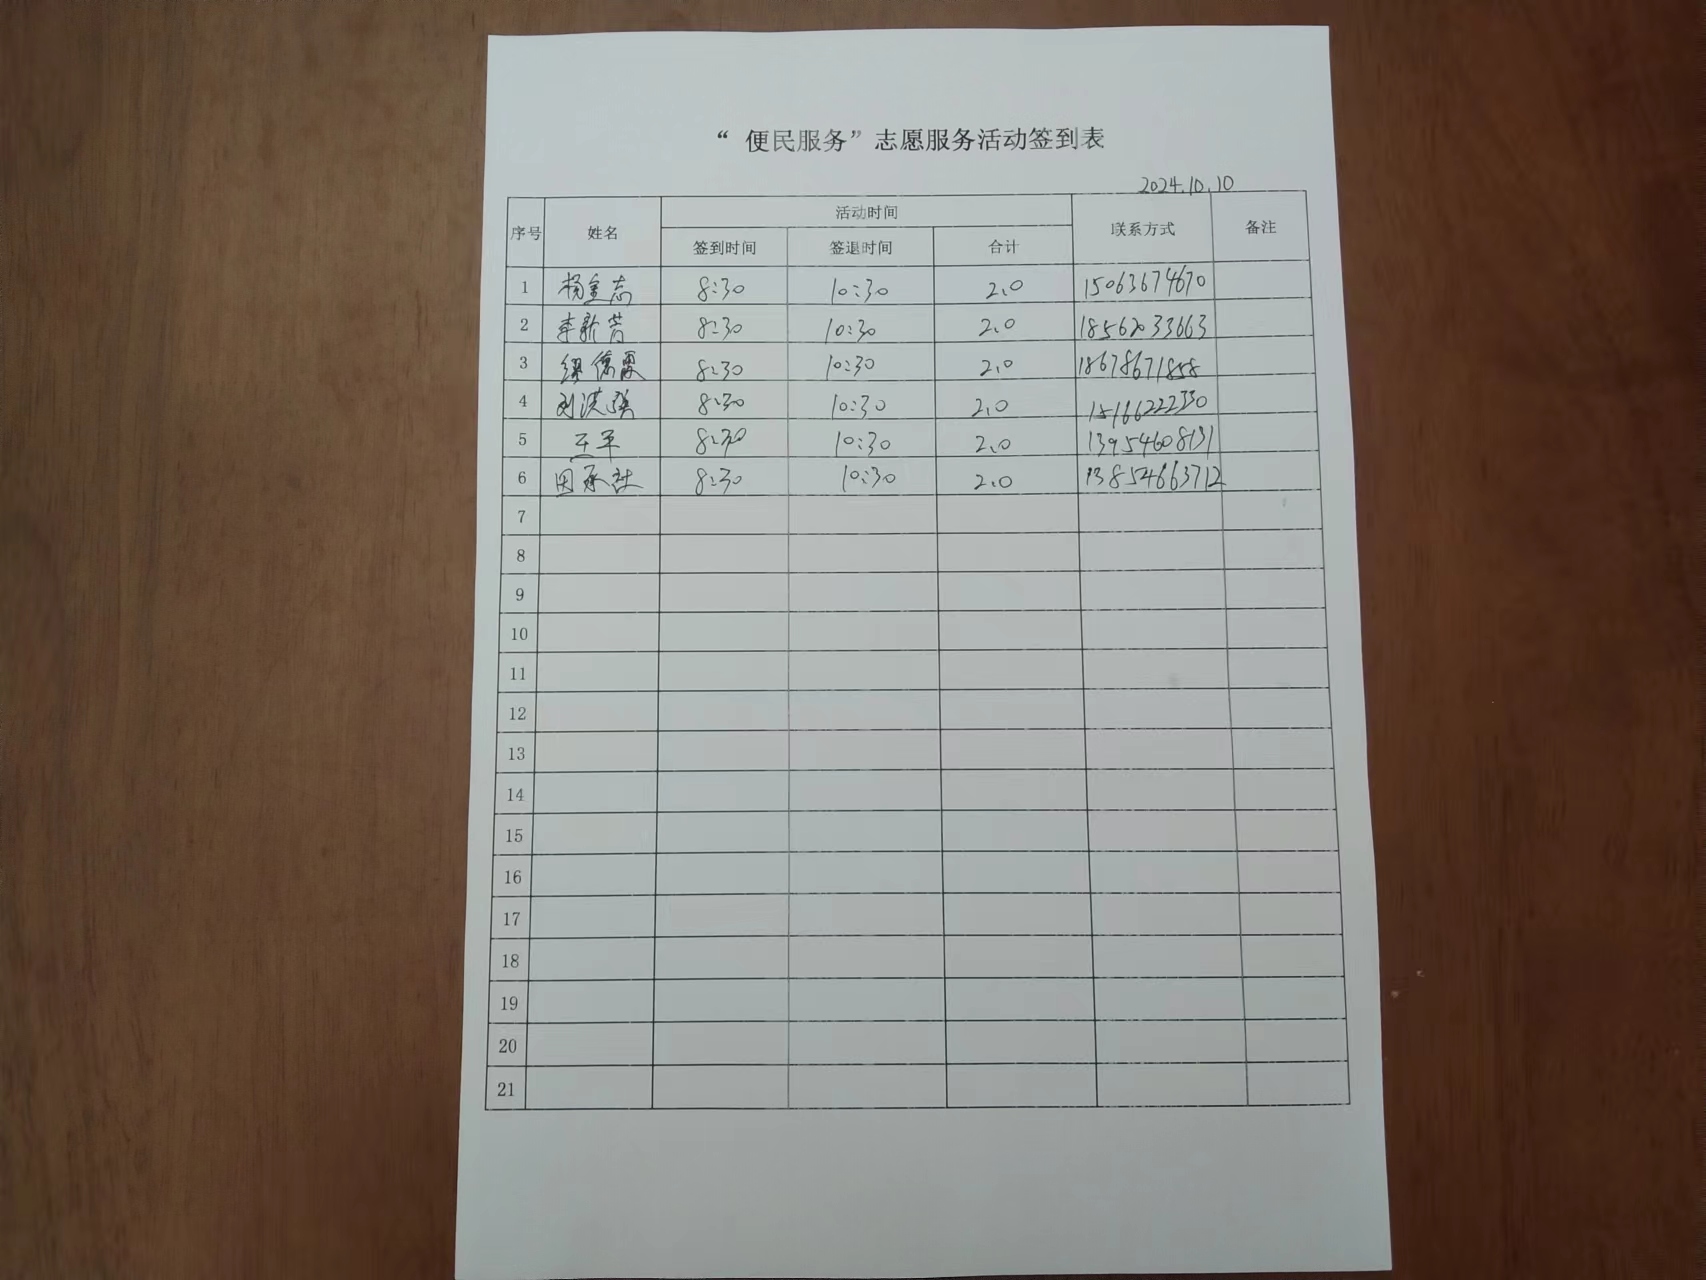 “ 便民服务”志愿服务活动签到表
2024.10.10
序号 姓名 活动时间 联系方式 备注
签到时间 签退时间 合计
1 杨金志 8:30 10:30 2.0 15063674670
2 李新芳 8:30 10:30 2.0 18562033663
3 8:30 10:30 2.0 18678671858
4 刘洪强 8:30 10:30 2.0 15166222330
5 王平 8:30 10:30 2.0 13954608191
6 田承社 8:30 10:30 2.0 13854663712
7
8
9
10
11
12
13
14
15
16
17
18
19
20
21